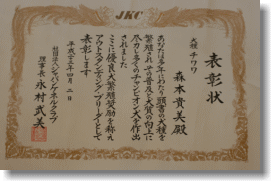 JKC
表彰状
犬種 チワワ
森本貴美殿
あなたは多年にわたり頭書の犬種を
繁殖されその普及と犬質の向上に
尽力し多くのチャンピオン犬を作出
されました
ここに優良犬繁殖奨励を称え
アウトスタンディングブリーダーとして
表彰します
平成十五年四月二日
社団法人ジャパンケネルクラブ
理事長 永村武美